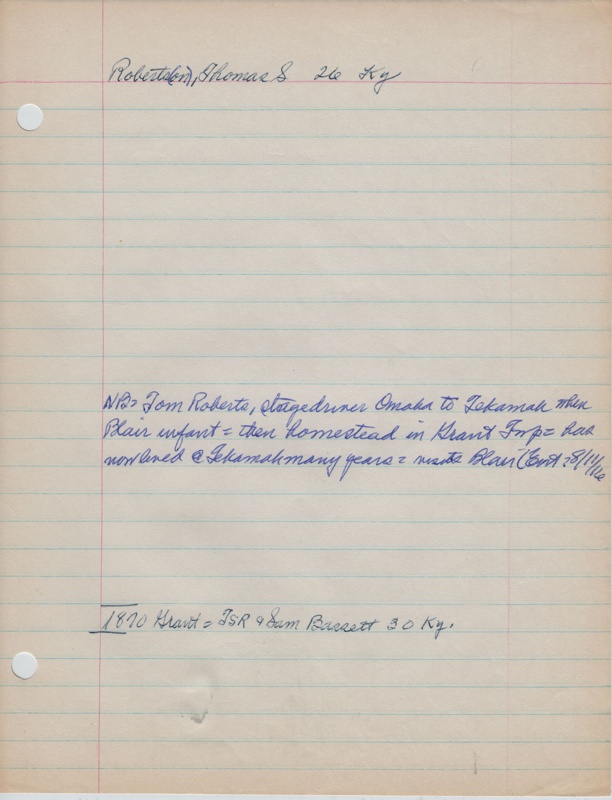 Roberts(on), Thomas S 26 Ky
NB= Tom Roberts, stagedriver Omaha to Tekamah when
Blair infant = then homestead in Grant Twp = has
now lived @ Tekamah many years = visits Blair (Ent = 8/11/16
1870 Grant = TSR & Sam Bassett 30 Ky.